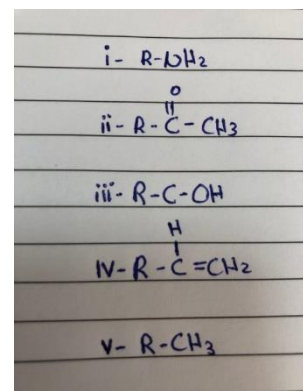 i- R-NH2
O
||
ii- R-C-CH3
iii- R-C-OH
H
|
IV- R-C=CH2
V- R-CH3